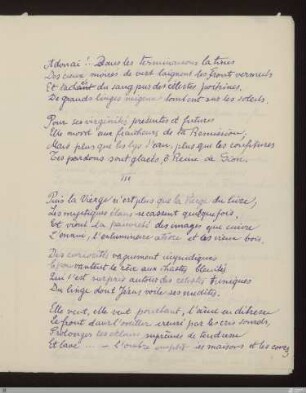 Adonaï !... Dans les terminaisons latines
Des cieux moirés de vert baignent les fronts vermeils
Et tachés du sang pur des célestes poitrines,
De grands linges neigeux tombent sur les soleils.
Pour ses virginités présentes et futures
Elle mord aux fraîcheurs de ta Rémission,
Mais plus que les lys d'eau, plus que les confitures
Tes pardons sont glacés, ô Reine de Sion.
III
Puis la Vierge n'est plus que la Vierge du livre,
Les mystiques élans se cassent quelquefois,
Et vient la pauvreté des images que cuivre
L'ennui, l'enluminure atroce et les vieux bois.
Des curiosités vaguement impudiques
Épouvantent le rêve aux chastes bleuités
Qui s'est surpris autour des célestes tuniques
Du linge dont Jésus voile ses nudités.
Elle veut, elle veut pourtant, l'âme en détresse
Le front dans l'oreiller creusé par les cris sourds,
Prolonger les éclairs suprêmes de tendresse
Et bave --- L'ombre emplit les maisons et les cours